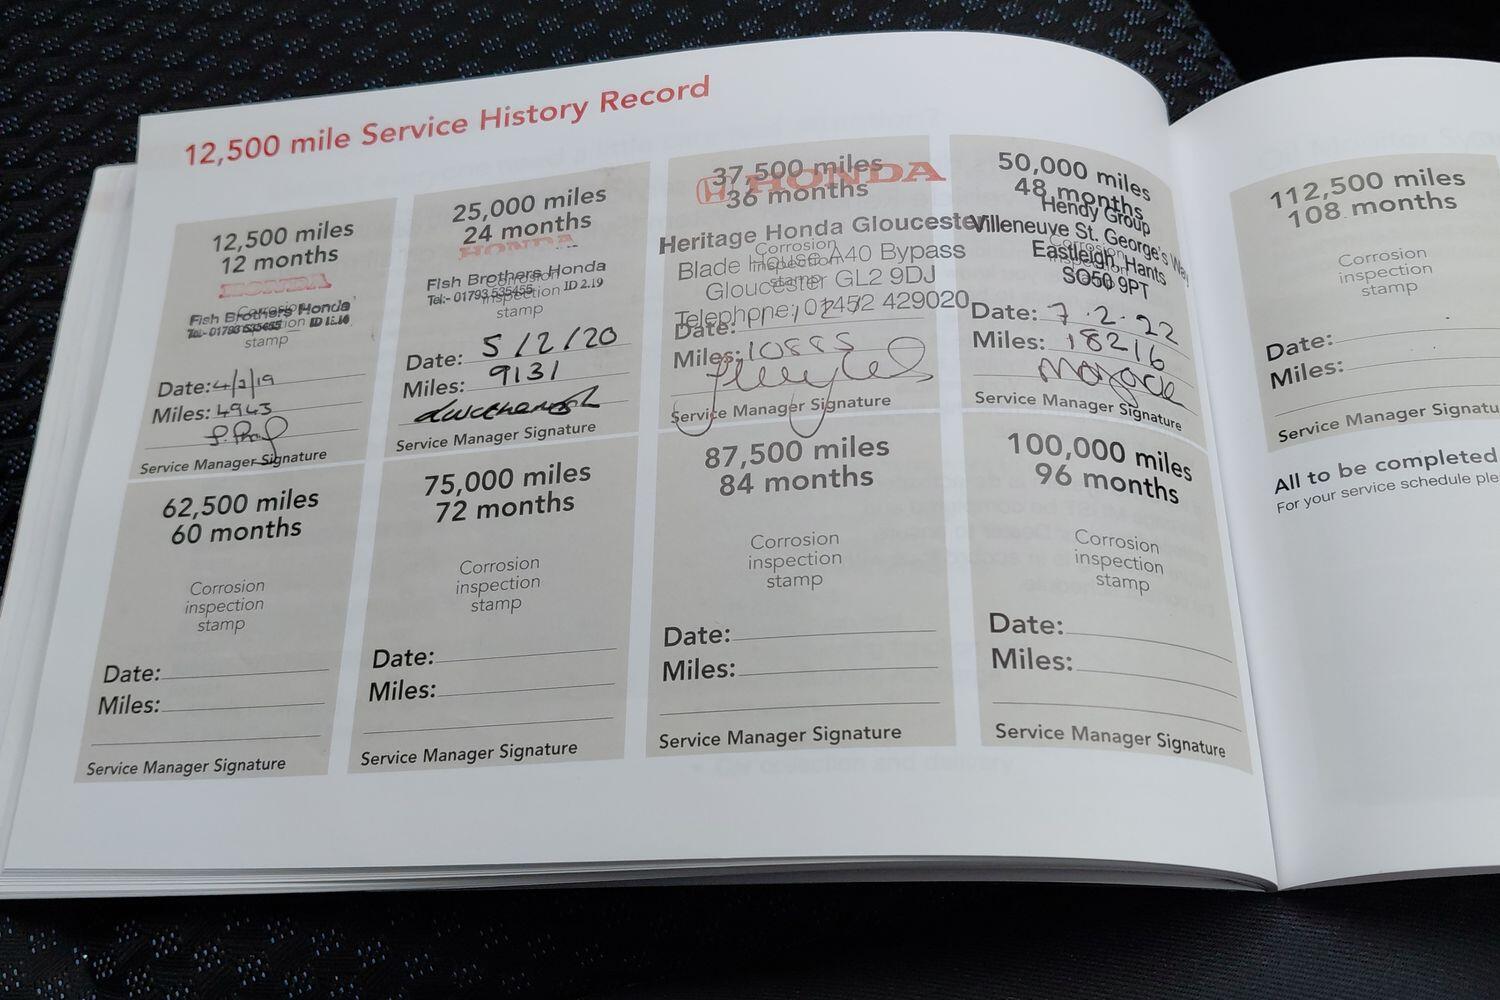 12,500 mile Service History Record
12,500 miles
12 months
HONDA
Fish Brothers Honda
Tel:- 01793 535455
Corrosion
inspection
stamp
Date: 4/2/19
Miles: 4943
Service Manager Signature
25,000 miles
24 months
HONDA
Fish Brothers Honda
Tel:- 01793 535455 ID 2.19
Corrosion
inspection
stamp
Date: 5/2/20
Miles: 9131
Service Manager Signature
37,500 miles
36 months
HONDA
Heritage Honda Gloucester
Blade House A40 Bypass
Gloucester GL2 9DJ
Telephone: 01452 429020
Corrosion
inspection
stamp
Date:
Miles:
Service Manager Signature
50,000 miles
48 months
Hendy Group
Villeneuve St. George's Way
Eastleigh, Hants
SO50 9PT
Corrosion
inspection
stamp
Date: 7.2.22
Miles: 18216
Service Manager Signature
62,500 miles
60 months
Corrosion
inspection
stamp
Date:
Miles:
Service Manager Signature
75,000 miles
72 months
Corrosion
inspection
stamp
Date:
Miles:
Service Manager Signature
87,500 miles
84 months
Corrosion
inspection
stamp
Date:
Miles:
Service Manager Signature
100,000 miles
96 months
Corrosion
inspection
stamp
Date:
Miles:
Service Manager Signature
112,500 miles
108 months
Corrosion
inspection
stamp
Date:
Miles:
Service Manager Signatu
All to be completed
For your service schedule ple